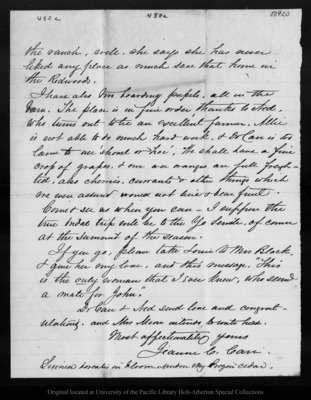 480a
480a
80920
the ranch, well. She says she has never
liked any place as much save that home in
the Redwoods.
I have also two boarding pupils, all in the
barn. The place is in fine order thanks to Ned.
who turns out to be an excellent farmer. Allie
is not able to do much hard work, & Dr Carr is too
lame to use 'shovel or hoe'. We shall have a fine
crop of grapes, & one or two oranges are full
also cherries, currants & other things which
we were assured would not live & bear fruit.
Come & see us when you can - I suppose the
true bridal trip will be to the Yo Semite, of course
at the summit of the season.
If you go, please take Louie to Mrs Black,
& give her my love, and this message. "This
is the only woman that I ever knew, who seemed
a mate for John."
Dr Carr & Ned send love and congrat-
ulations, and Mrs Moore intends to write here.
Most affectionately yours
Jeanne C. Carr.
Linnea borealis in bloom under my Oregon cedar.
Original located at University of the Pacific Library Holt-Atherton Special Collections